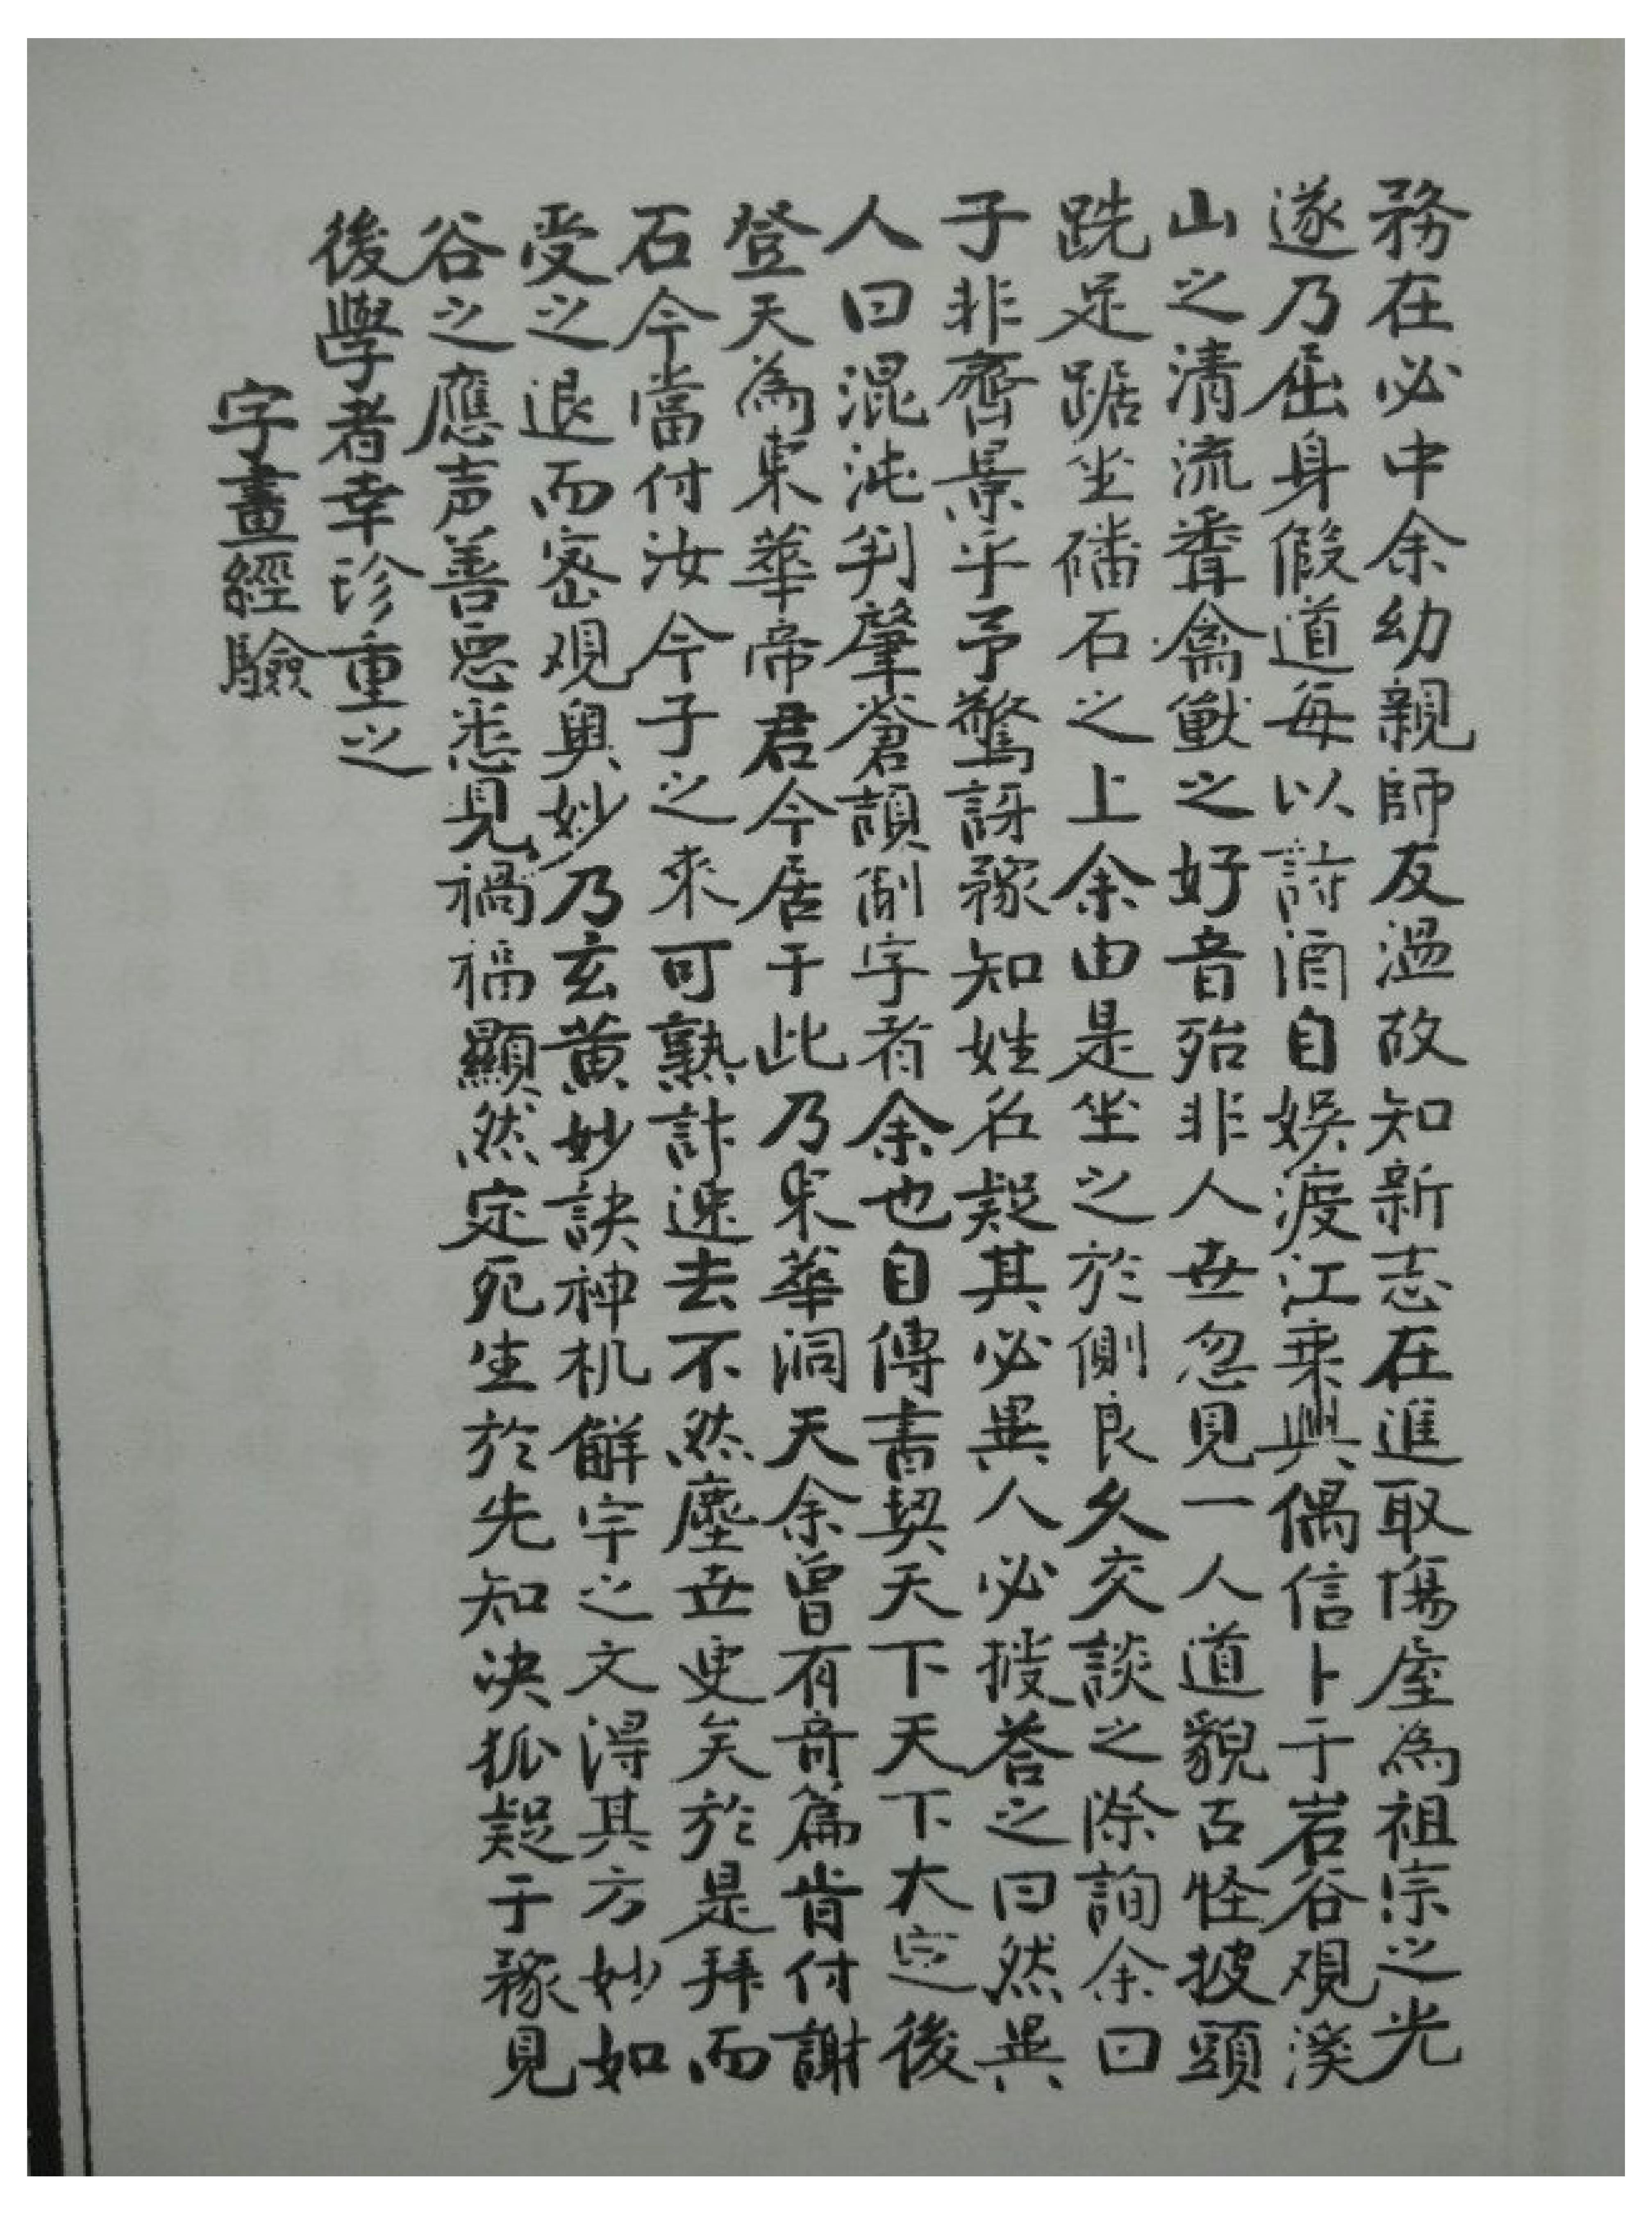 務在必中余幼親師友温故知新志在進取傷屋為祖宗之光
遂乃屈身假道每以詩酒自娛渡江乘興偶信卜于岩谷观溪
山之清流聋禽獸之好音殆非人世忽見一人道貌古怪披頭
跣足踞坐磻石之上余由是坐之於側良久交談之際詢余曰
子非齊景乎予驚訝稼知姓名疑其必異人必披荅之曰然異
人曰混沌判肇蒼頡制字者余也自傳書契天下天下大定後
登天為東華帝君今居于此乃東華洞天余曾有奇篇肯付謝
石今當付汝今子之來可熟計速去不然塵世更矣於是拜而
受之退而密观奥妙乃玄黄妙訣神机解字之文得其方妙如
谷之應声善惡悉見禍福顯然定死生於先知决狐疑于稼見
後學者幸珍重之
字畫經驗